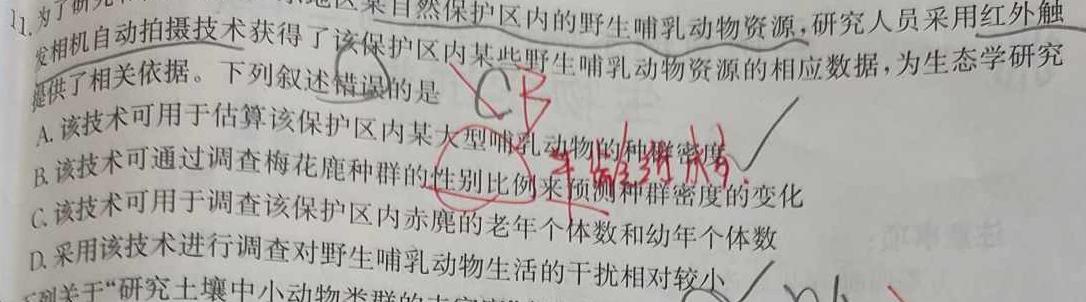 11.为了研究 地区某自然保护区内的野生哺乳动物资源,研究人员采用红外触
发相机自动拍摄技术获得了该保护区内某些野生哺乳动物资源的相应数据,为生态学研究
提供了相关依据。下列叙述错误的是 C B
A.该技术可用于估算该保护区内某大型哺乳动物的种群密度
B.该技术可通过调查梅花鹿种群的性别比例来预测种群密度的变化
C.该技术可用于调查该保护区内赤麂的老年个体数和幼年个体数
D.采用该技术进行调查对野生哺乳动物生活的干扰相对较小
下列关于“研究土壤中小动物类群的丰富度”